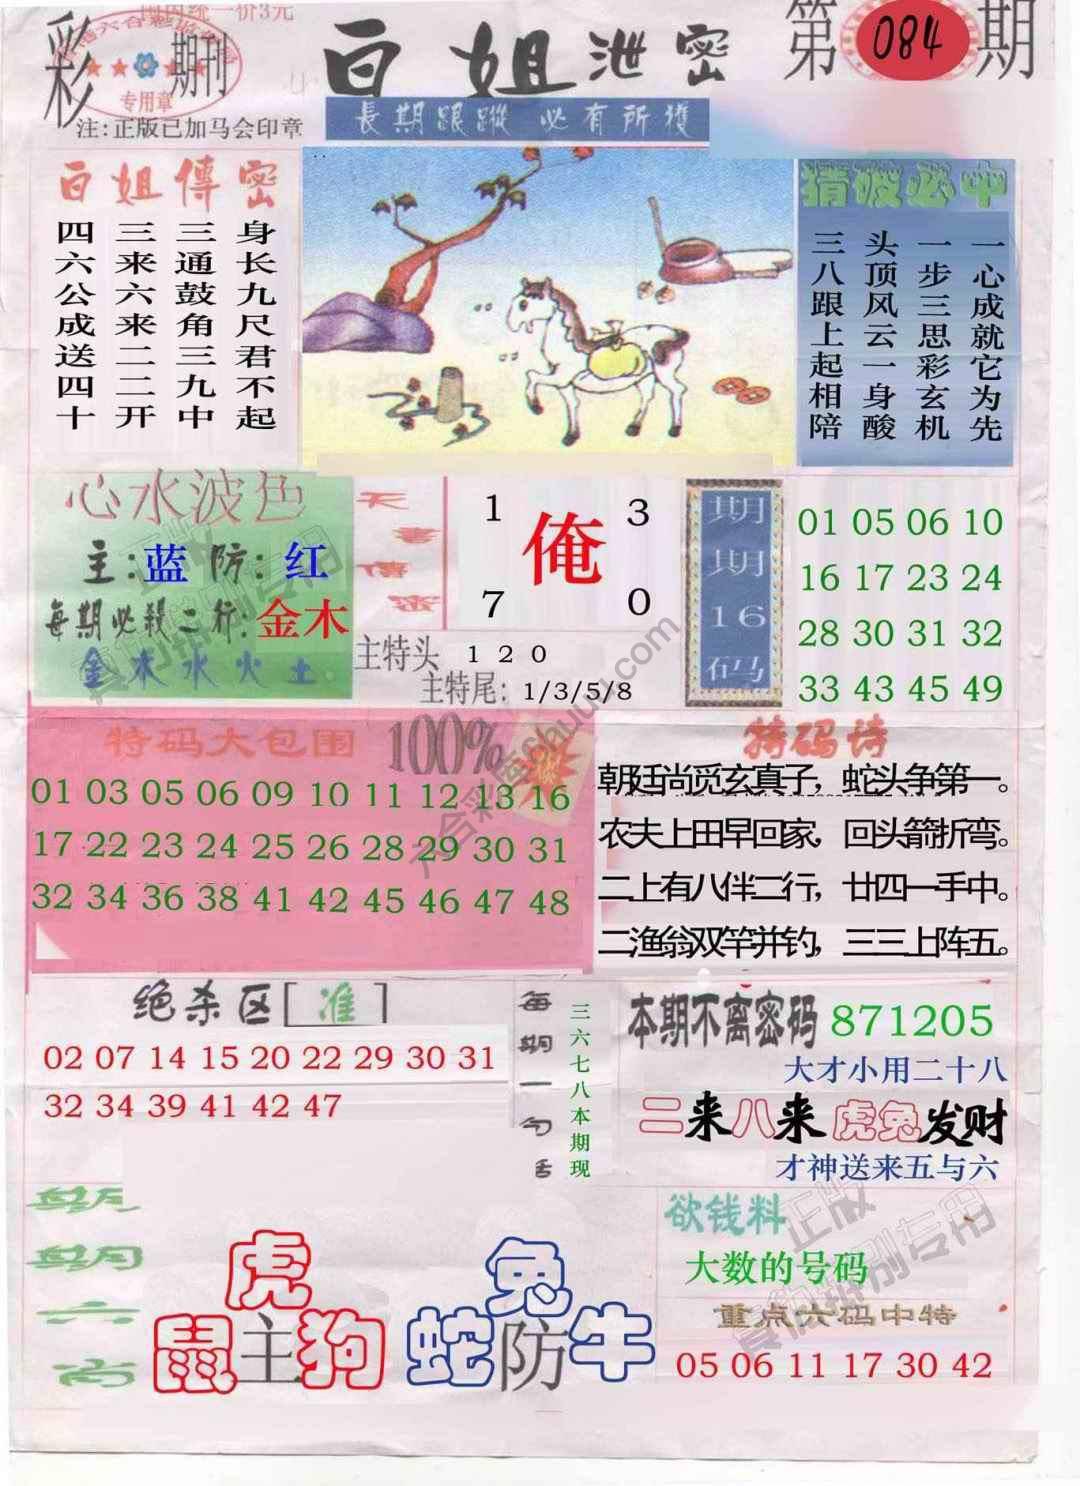 国统一价3元
彩
期刊
专用章
注:正版已加马会印章
白姐泄密
第 084 期
長期跟蹤 必有所獲
白姐傳密
身长九尺君不起
三通鼓角三九中
三来六来二二开
四六公成送四十
猜破必中
一心成就它为先
一步三思彩玄机
头顶风云一身酸
三八跟上起相陪
心水波色
主:蓝 防:红
每期必殺二行:金木
金木水火土
天書傳密
1 3
俺
7 0
主特头 1 2 0
主特尾: 1/3/5/8
期期16码
01 05 06 10
16 17 23 24
28 30 31 32
33 43 45 49
特码大包围 100%准
01 03 05 06 09 10 11 12 13 16
17 22 23 24 25 26 28 29 30 31
32 34 36 38 41 42 45 46 47 48
特码诗
朝廷尚觅玄真子，蛇头争第一。
农夫上田早回家，回头箭折弯。
二上有八伴二行，廿四一手中。
二渔翁双竿并钓，三三上阵五。
绝杀区[准]
02 07 14 15 20 22 29 30 31
32 34 39 41 42 47
每期一句舌
三六七八本期现
本期不离密码 871205
大才小用二十八
二来八来虎兔发财
才神送来五与六
期期六肖
虎
鼠主狗
兔
蛇防牛
欲钱料
大数的号码
重点六码中特
05 06 11 17 30 42